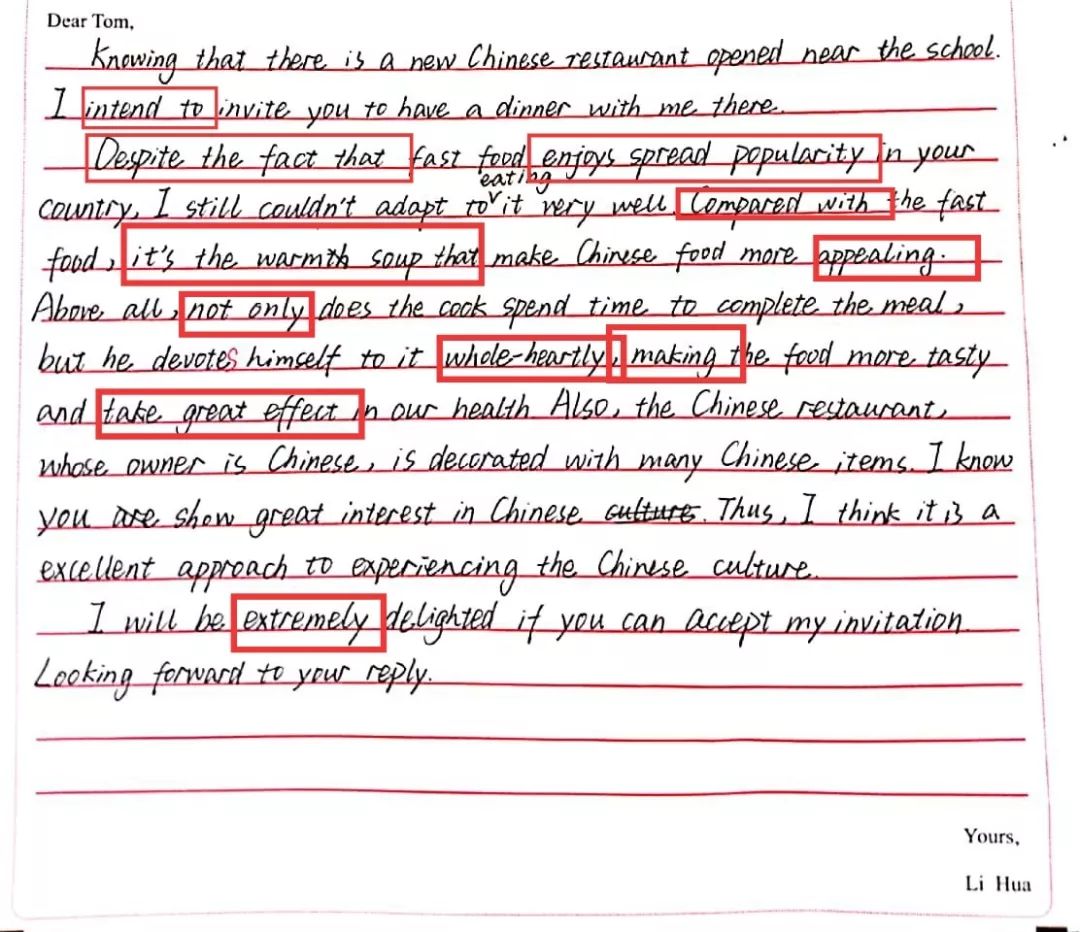 Dear Tom,
Knowing that there is a new Chinese restaurant opened near the school.
I intend to invite you to have a dinner with me there.
Despite the fact that fast food enjoys spread popularity in your
eating
country, I still couldn't adapt to it very well. Compared with the fast
food, it's the warmth soup that make Chinese food more appealing.
Above all, not only does the cook spend time to complete the meal,
but he devotes himself to it whole-heartly, making the food more tasty
and take great effect in our health Also, the Chinese restaurant,
whose owner is Chinese, is decorated with many Chinese items. I know
you are show great interest in Chinese culture. Thus, I think it is a
excellent approach to experiencing the Chinese culture.
I will be extremely delighted if you can accept my invitation.
Looking forward to your reply.
Yours,
Li Hua